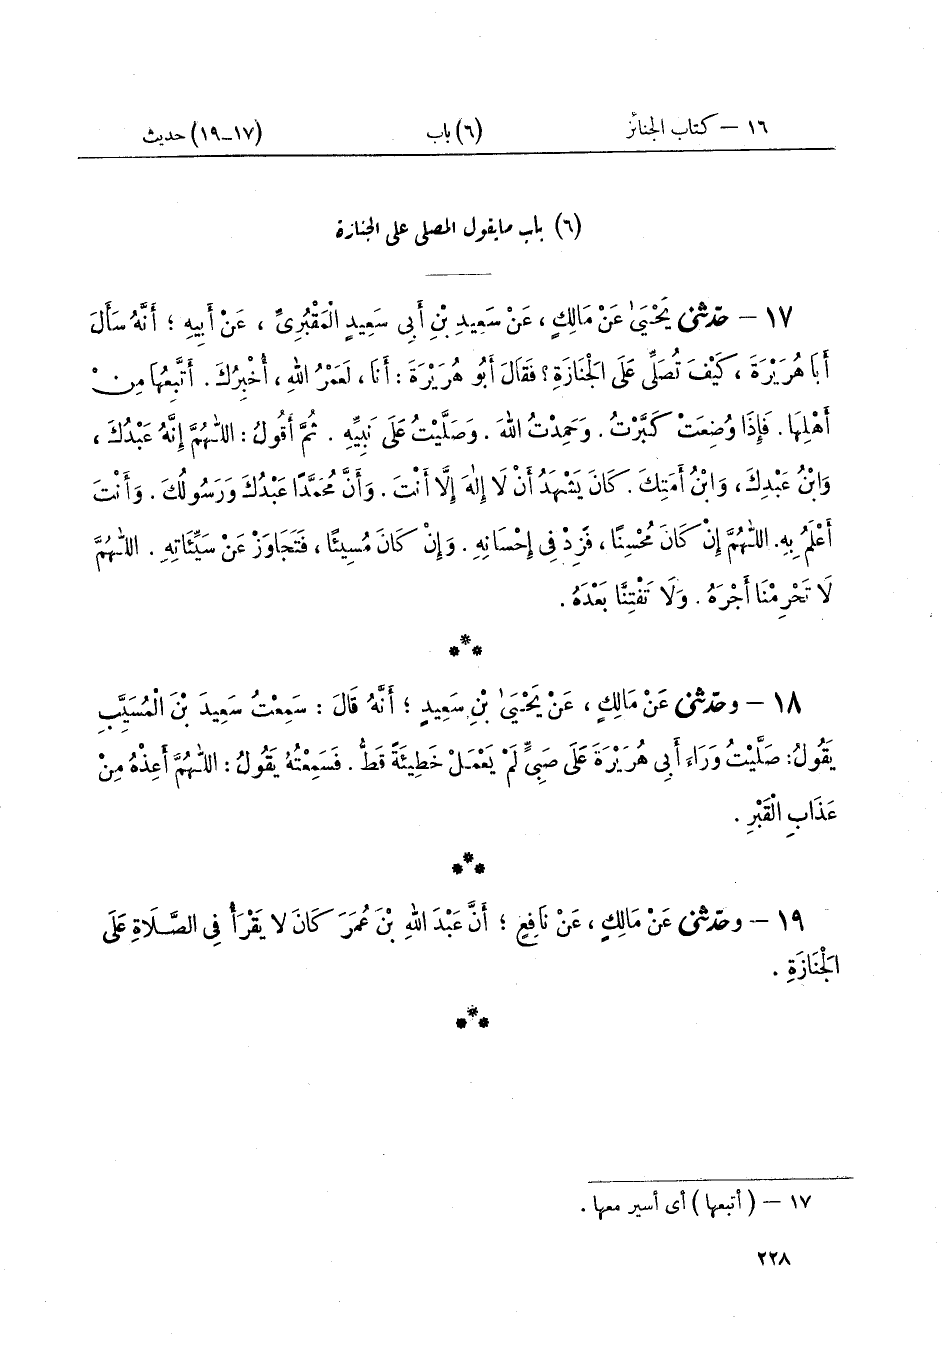 ١٦ – كتاب الجنائز (٦) باب (١٧–١٩) حديث
(٦) باب مايقول المصلى على الجنازة
١٧ – حدّثنى يَحْيَىٰ عَنْ مَالِكٍ ، عَنْ سَعِيدِ بْنِ أَبِى سَعِيدٍ الْمَقْبُرِىِّ ، عَنْ أَبِيهِ ؛ أَنَّهُ سَأَلَ
أَبَا هُرَيْرَةَ ، كَيْفَ تُصَلِّى عَلَى الْجَنَازَةِ ؟ فَقَالَ أَبُو هُرَيْرَةَ : أَنَا ، لَعَمْرُ اللهِ ، أُخْبِرُكَ . أَتَّبِعُهَا مِنْ
أَهْلِهَا . فَإِذَا وُضِعَتْ كَبَّرْتُ . وَحَمِدْتُ اللهَ . وَصَلَّيْتُ عَلَى نَبِيِّهِ . ثُمَّ أَقُولُ : اللّٰهُمَّ إِنَّهُ عَبْدُكَ ،
وَابْنُ عَبْدِكَ ، وَابْنُ أَمَتِكَ . كَانَ يَشْهَدُ أَنْ لَا إِلٰهَ إِلَّا أَنْتَ . وَأَنَّ مُحَمَّدًا عَبْدُكَ وَرَسُولُكَ . وَأَنْتَ
أَعْلَمُ بِهِ . اللّٰهُمَّ إِنْ كَانَ مُحْسِنًا ، فَزِدْ فِى إِحْسَانِهِ . وَإِنْ كَانَ مُسِيئًا ، فَتَجَاوَزْ عَنْ سَيِّئَاتِهِ . اللّٰهُمَّ
لَا تَحْرِمْنَا أَجْرَهُ . وَلَا تَفْتِنَّا بَعْدَهُ .
١٨ – وحدّثنى عَنْ مَالِكٍ ، عَنْ يَحْيَىٰ بْنِ سَعِيدٍ ؛ أَنَّهُ قَالَ : سَمِعْتُ سَعِيدَ بْنَ الْمُسَيَّبِ
يَقُولُ : صَلَّيْتُ وَرَاءَ أَبِى هُرَيْرَةَ عَلَى صَبِىٍّ لَمْ يَعْمَلْ خَطِيئَةً قَطُّ . فَسَمِعْتُهُ يَقُولُ : اللّٰهُمَّ أَعِذْهُ مِنْ
عَذَابِ الْقَبْرِ .
١٩ – وحدّثنى عَنْ مَالِكٍ ، عَنْ نَافِعٍ ؛ أَنَّ عَبْدَ اللهِ بْنَ عُمَرَ كَانَ لَا يَقْرَأُ فِى الصَّلَاةِ عَلَى
الْجَنَازَةِ .
١٧ – (أتبعها) أى أسير معها .
٢٢٨